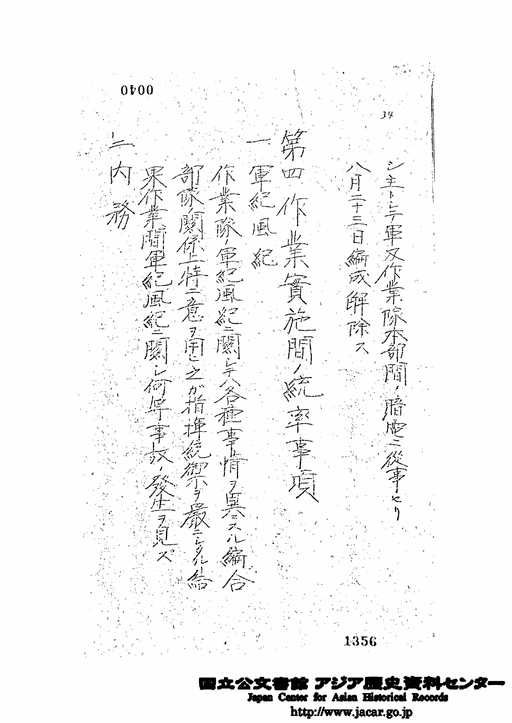 0040
34
シ主トシテ軍又作業隊本部間ノ暗電ニ從事セリ
八月二十三日編成解除ス
第四 作業實施間ノ統率事項
一 軍紀風紀
作業隊ノ軍紀風紀ニ關シテハ各種事情ヲ異ニスル編合
部隊ノ關係上特ニ意ヲ用ヒ之が指揮統御ヲ嚴ニシタル結
果作業間軍紀風紀ニ關シ何等事故ノ發生ヲ見ズ
二 内務
1356
国立公文書館 アジア歴史資料センター
Japan Center for Asian Historical Records
http://www.jacar.go.jp